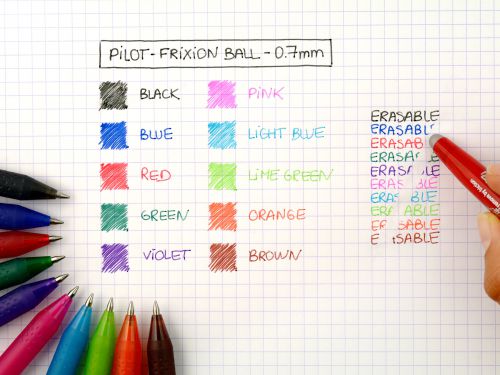 PiLOT - FRiXiON BALL - 0.7mm
BLACK
BLUE
RED
GREEN
ViOLET
PiNK
LiGHT BLUE
LiME GREEN
ORANGE
BROWN
ERASABLE
ERASABL
ERASAB
ERASA LE
ERAS BLE
ERAS BLE
ERA BLE
ERA ABLE
ER SABLE
E iSABLE